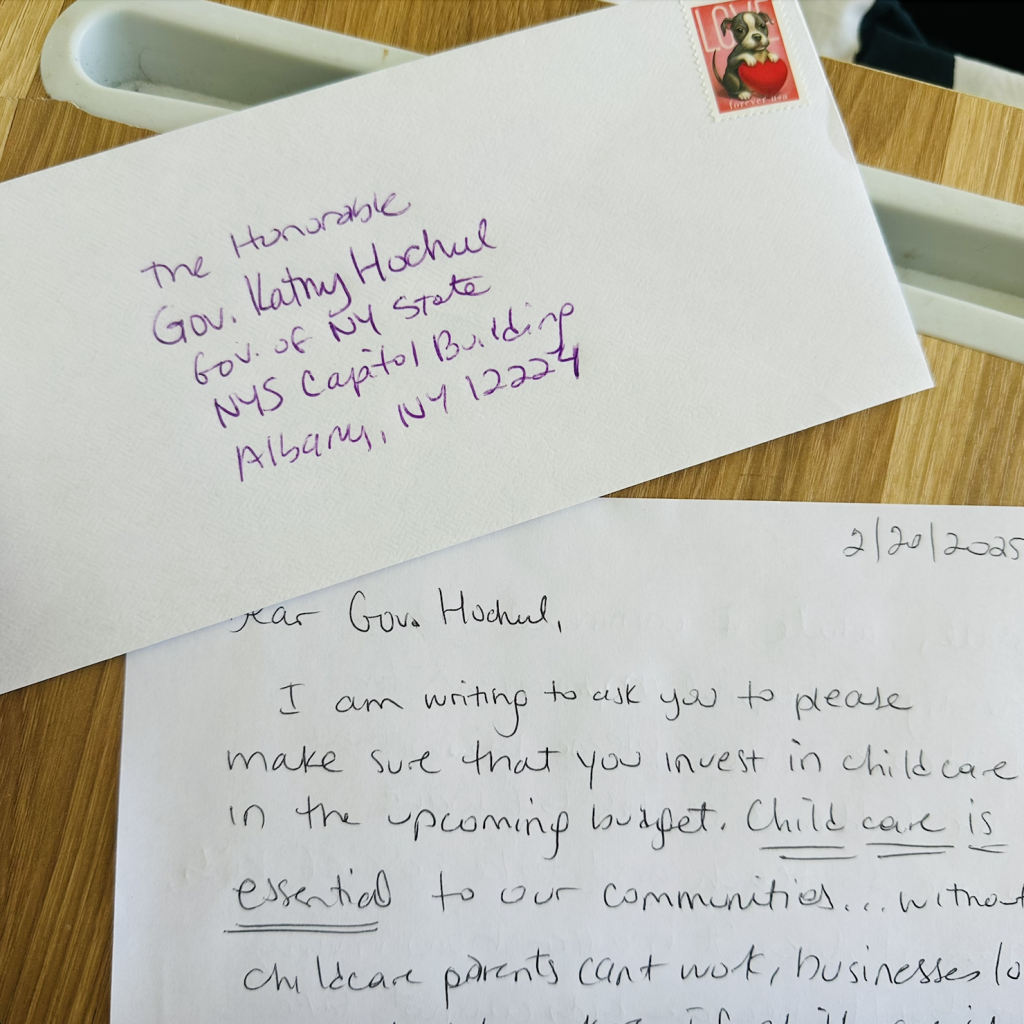 LOVE
forever usa
The Honorable
Gov. Kathy Hochul
Gov. of NY State
NYS Capitol Building
Albany, NY 12224
2/20/2025
Dear Gov. Hochul,
I am writing to ask you to please
make sure that you invest in childcare
in the upcoming budget. Child care is
essential to our communities... without
childcare parents cant work, businesses lo